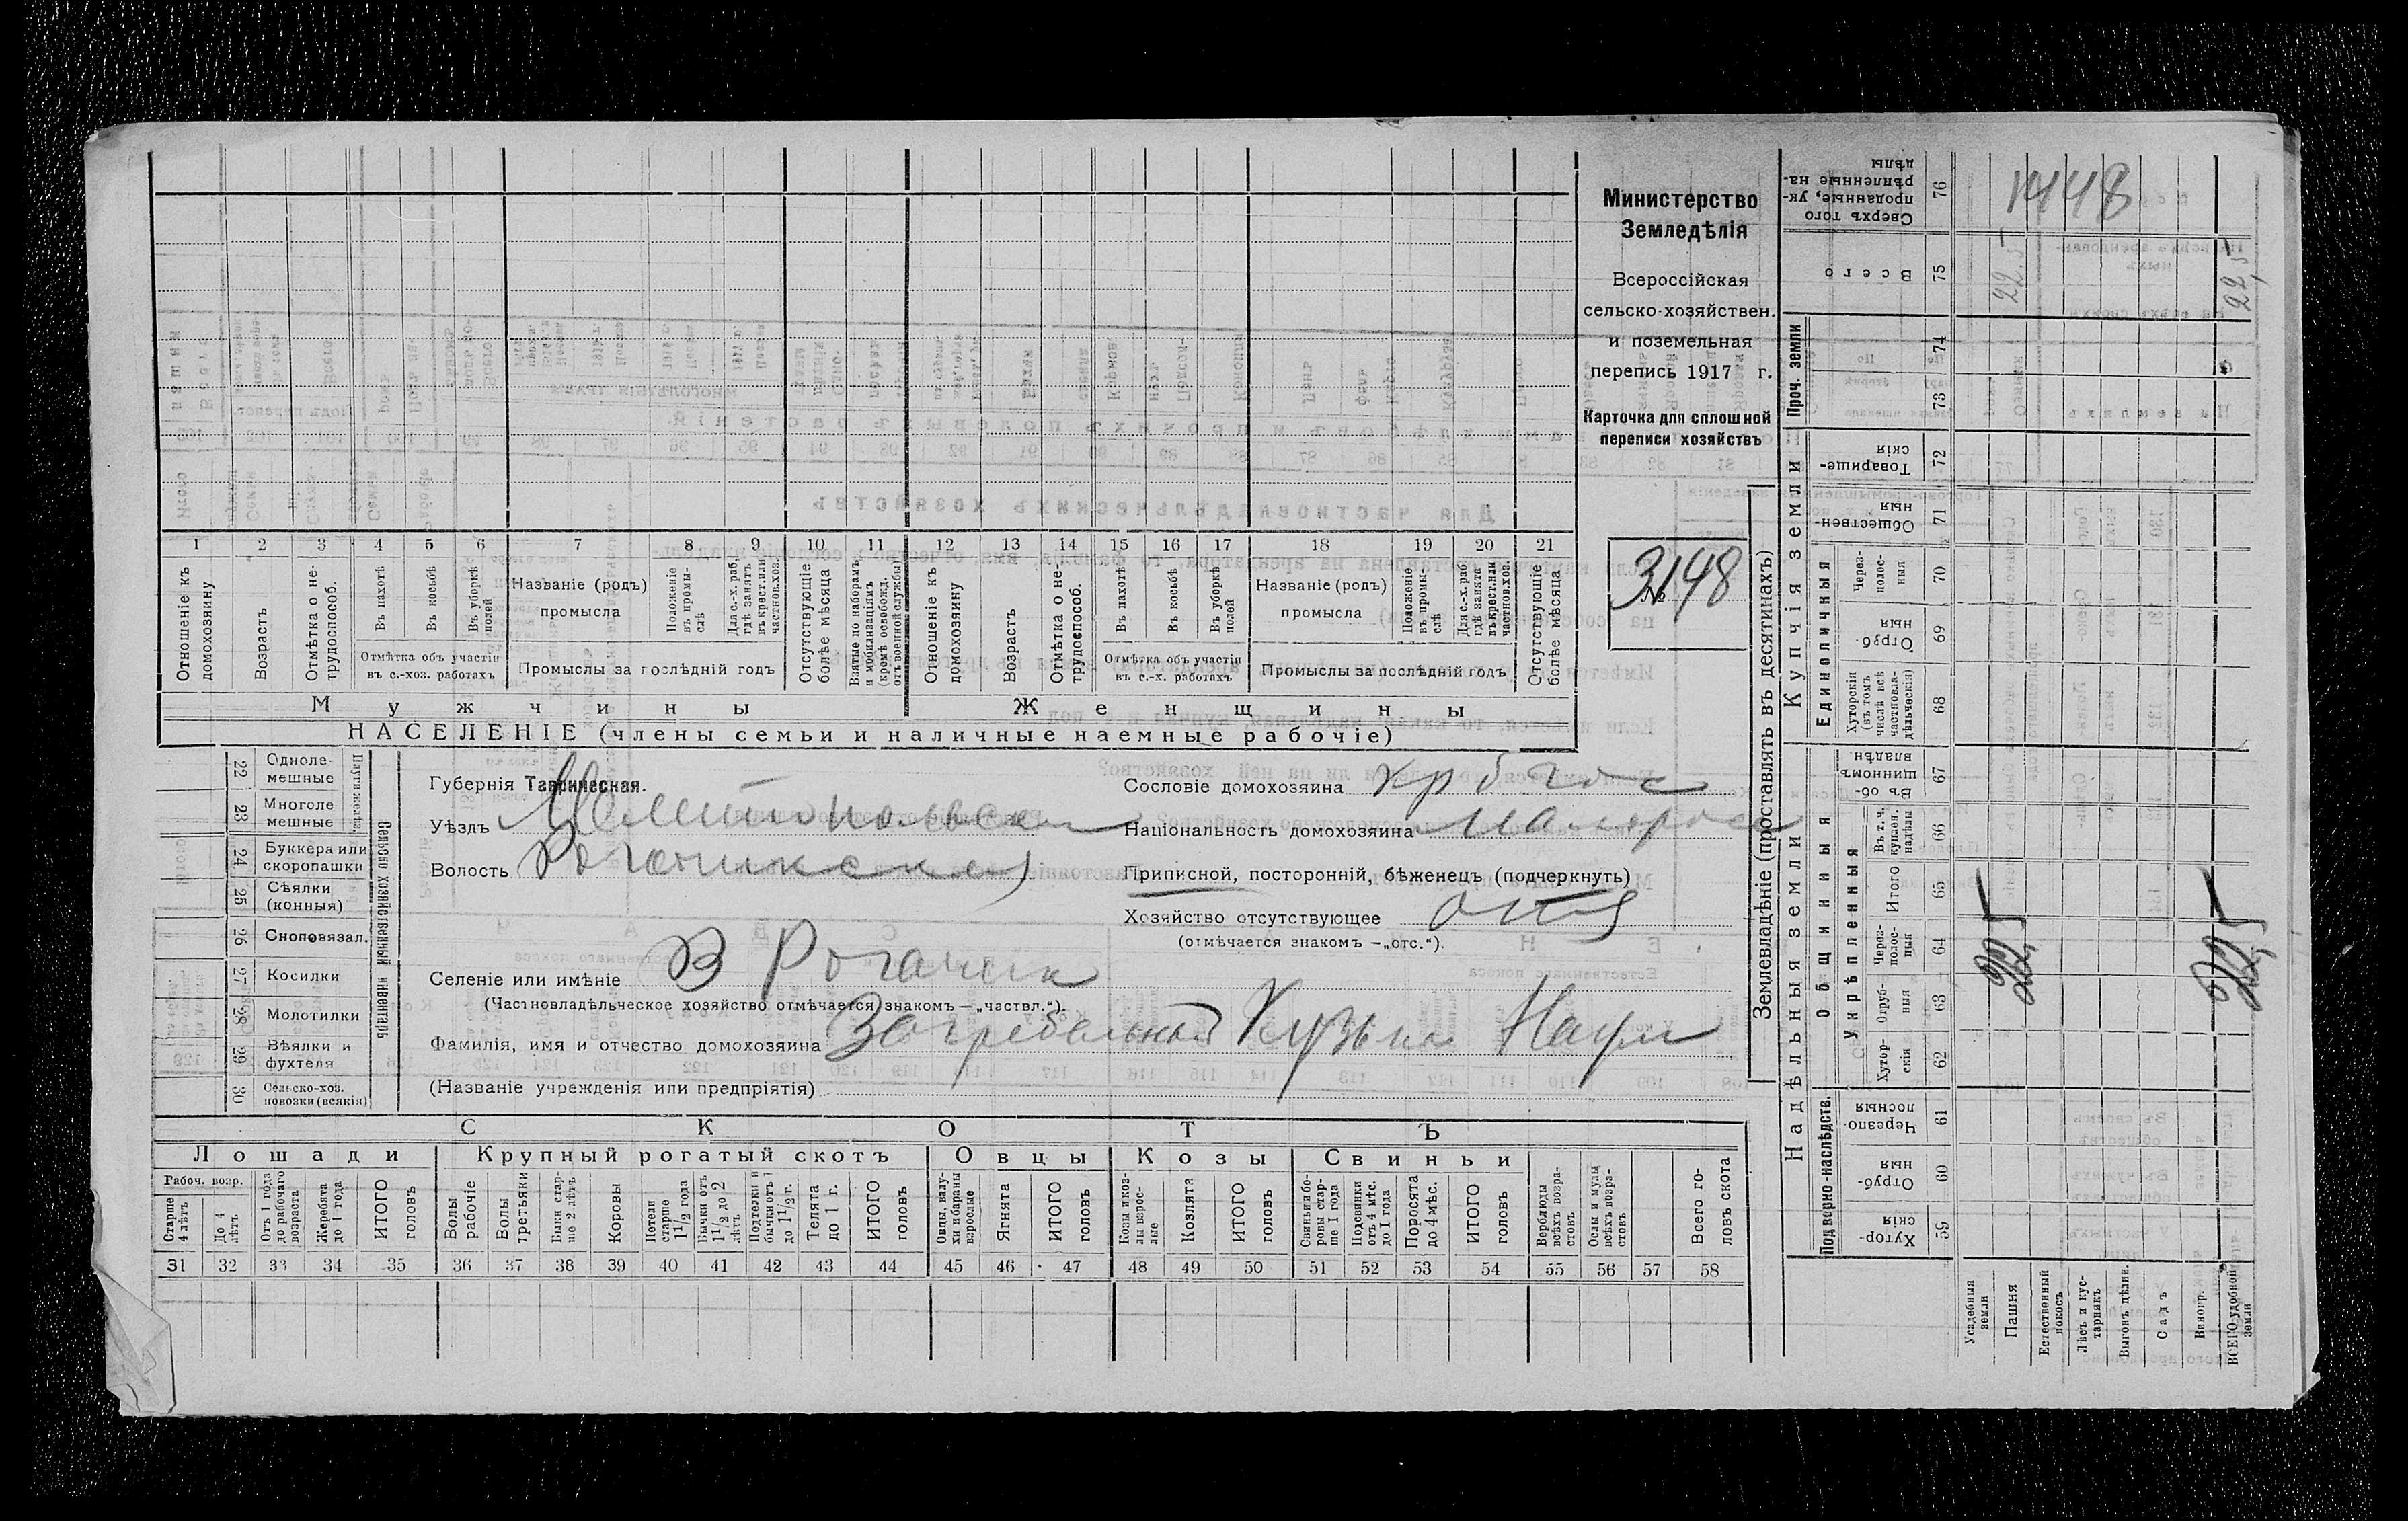 Министерство
Земледѣлія
Всероссійская
сельско-хозяйствен.
и поземельная
перепись 1917 г.
Карточка для сплошной
переписи хозяйствъ
№ 3148
1 2 3 4 5 6 7 8 9 10 11 12 13 14 15 16 17 18 19 20 21
Отношеніе къ домохозяину
Возрастъ
Отмѣтка о не-трудоспособ.
Въ пахотѣ
Въ косьбѣ
Въ уборкѣ полей
Отмѣтка объ участіи въ с.-хоз. работахъ
Названіе (родъ) промысла
Положеніе въ промы-слѣ
Для с.-х. раб. гдѣ занятъ въ крест. или частнов. хоз.
Промыслы за послѣдній годъ
Отсутствующіе болѣе мѣсяца
Взятые по наборамъ и мобилизаціямъ (кромѣ освобожд. отъ военной службы)
Отношеніе къ домохозяину
Возрастъ
Отмѣтка о не-трудоспособ.
Въ пахотѣ
Въ косьбѣ
Въ уборкѣ полей
Отмѣтка объ участіи въ с.-х. работахъ
Названіе (родъ) промысла
Положеніе въ промы-слѣ
Для с.-х. раб. гдѣ занята въ крест. или частнов. хоз.
Промыслы за послѣдній годъ
Отсутствующіе болѣе мѣсяца
Мужчины Женщины
НАСЕЛЕНІЕ (члены семьи и наличные наемные рабочіе)
Сельско хозяйственный инвентарь
22 Одноле-мешные
23 Многоле мешные
24 Буккера или скоропашки
25 Сѣялки (конныя)
26 Сноповязал.
27 Косилки
28 Молотилки
29 Вѣялки и фухтеля
30 Сельско-хоз. повозки (всякія)
Губернія Таврическая.
Уѣздъ Мелитопольск
Волость
Сословіе домохозяина
Національность домохозяина малоросс
Приписной, посторонній, бѣженецъ (подчеркнуть)
Хозяйство отсутствующее
(отмѣчается знакомъ —„отс.“).
Селеніе или имѣніе В Рогачик
(Частновладѣльческое хозяйство отмѣчается знакомъ—„частвл.“).
Фамилія, имя и отчество домохозяина Загребельный Кузьма Наум
(Названіе учрежденія или предпріятія)
СКОТЪ
Лошади Крупный рогатый скотъ Овцы Козы Свиньи
Рабоч. возр.
Старше 4 лѣтъ
До 4 лѣтъ
Отъ 1 года до рабочаго возраста
Жеребята до 1 года
ИТОГО головъ
Волы рабочіе
Волы третьяки
Быки стар-ше 2 лѣтъ
Коровы
Нетели старше 1 1/2 года
Бычки отъ 1 1/2 до 2 лѣтъ
Подтелки и бычки отъ 1 до 1 1/2 г.
Телята до 1 г.
ИТОГО головъ
Овцы, валу-хи и бараны взрослые
Ягнята
ИТОГО головъ
Козы и коз-лы взрос-лые
Козлята
ИТОГО головъ
Свиньи и бо-ровы стар-ше 1 года
Подсвинки отъ 4 мѣс. до 1 года
Поросята до 4 мѣс.
ИТОГО головъ
Верблюды всѣхъ возра-стовъ
Ослы и мулы всѣхъ возра-стовъ
Всего го-ловъ скота
31 32 33 34 35 36 37 38 39 40 41 42 43 44 45 46 47 48 49 50 51 52 53 54 55 56 57 58
Землевладѣніе (проставлять въ десятинахъ)
Надѣльныя земли
Купчія земли
Проч. земли
Подворно-наслѣдств.
Общинныя
Укрѣпленныя
Единоличныя
76 Сверхъ того проданные, ук-рѣпленные на-дѣлы
1448
75 Всего 22,5 22,5
74
73
72 Товарище-скія
71 Обществен-ныя
70 Через-полос-ныя
69 Отруб-ныя
68 Хуторскія (въ томъ числѣ всѣ частновла-дѣльческія)
67 Въ об-щинномъ владѣн.
66 Въ т. ч. куплен. надѣлы
65 Итого
64 Через-полос-ныя 22,5 22,5
63 Отруб-ныя
62 Хутор-скія
61 Черезпо-лосныя
60 Отруб-ныя
59 Хутор-скія
Усадебныя земли
Пашня
Естественный покосъ
Лѣсъ и кус-тарникъ
Выгонъ цѣлин.
Садъ
Виногр.
ВСЕГО удобной земли